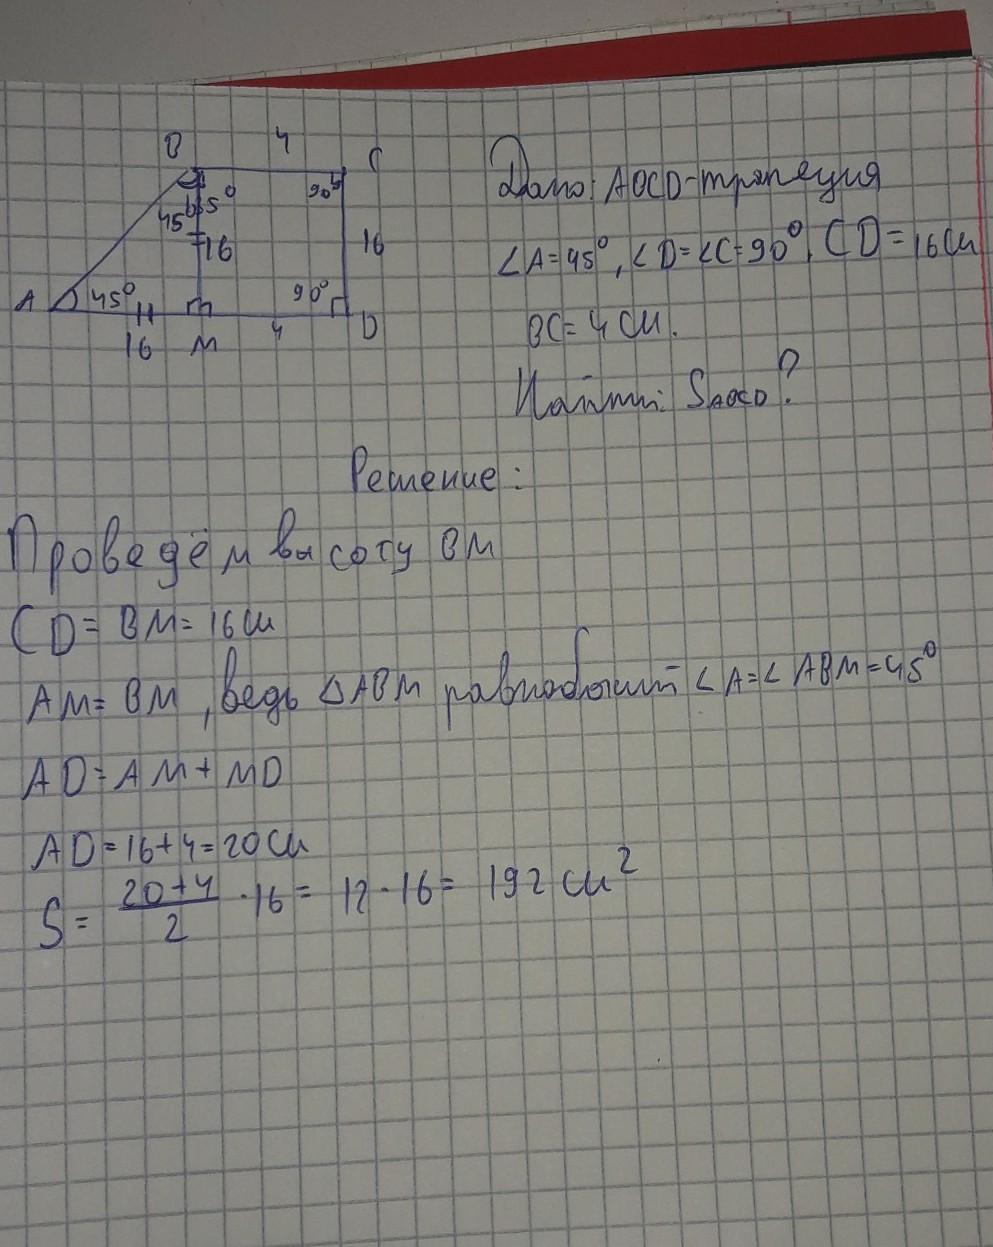 B 4 C
90°
45° 45°
16 16
A 45° 90° D
16 M 4
Дано: ABCD-трапеция
∠A=45°, ∠D=∠C=90°, CD=16см
BC=4 см.
Найти: SABCD?
Решение:
Проведём высоту BM
CD=BM=16см
AM=BM, ведь △ABM равнобокий ∠A=∠ABM=45°
AD=AM+MD
AD=16+4=20см
S= 20+4/2 ·16= 12·16= 192 см²